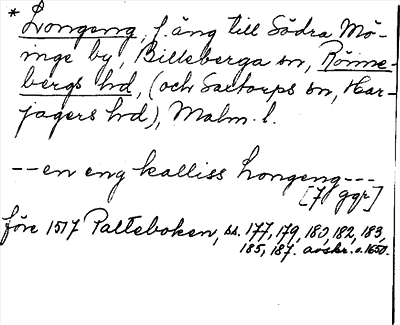 * Longeng, f. äng till Södra Mö-
inge by, Billeberga sn, Rönne-
bergs hd, (och Saxtorps sn, Har-
jagers hd), Malm. l.
-- en eng kalliss Longeng ---
[7 ggr]
före 1517 Palteboken, ss. 177, 179, 180, 182, 183,
185, 187. avskr. o. 1650.